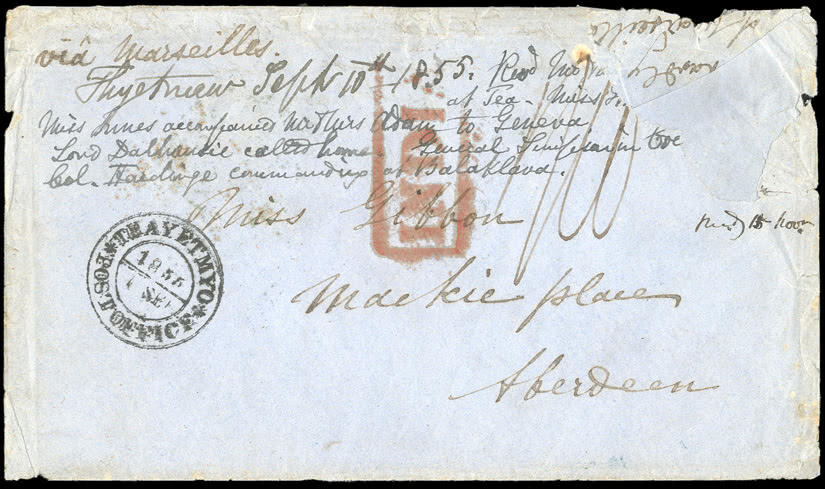 via Marseilles.
Thyetmew Sept 10th 1855. Recd
at Tea - Miss
Miss Innes accompanied Mr & Mrs Adam to Geneva
Lord Dalhousie called home. General Simpson in
Col. Hardinge commanding at Balaklava.
INDIA
Miss Gibbon
Mackie place
Aberdeen
Recd 15 Novr
THAYETMYO
POST OFFICE
1855
SEP
Marseilles